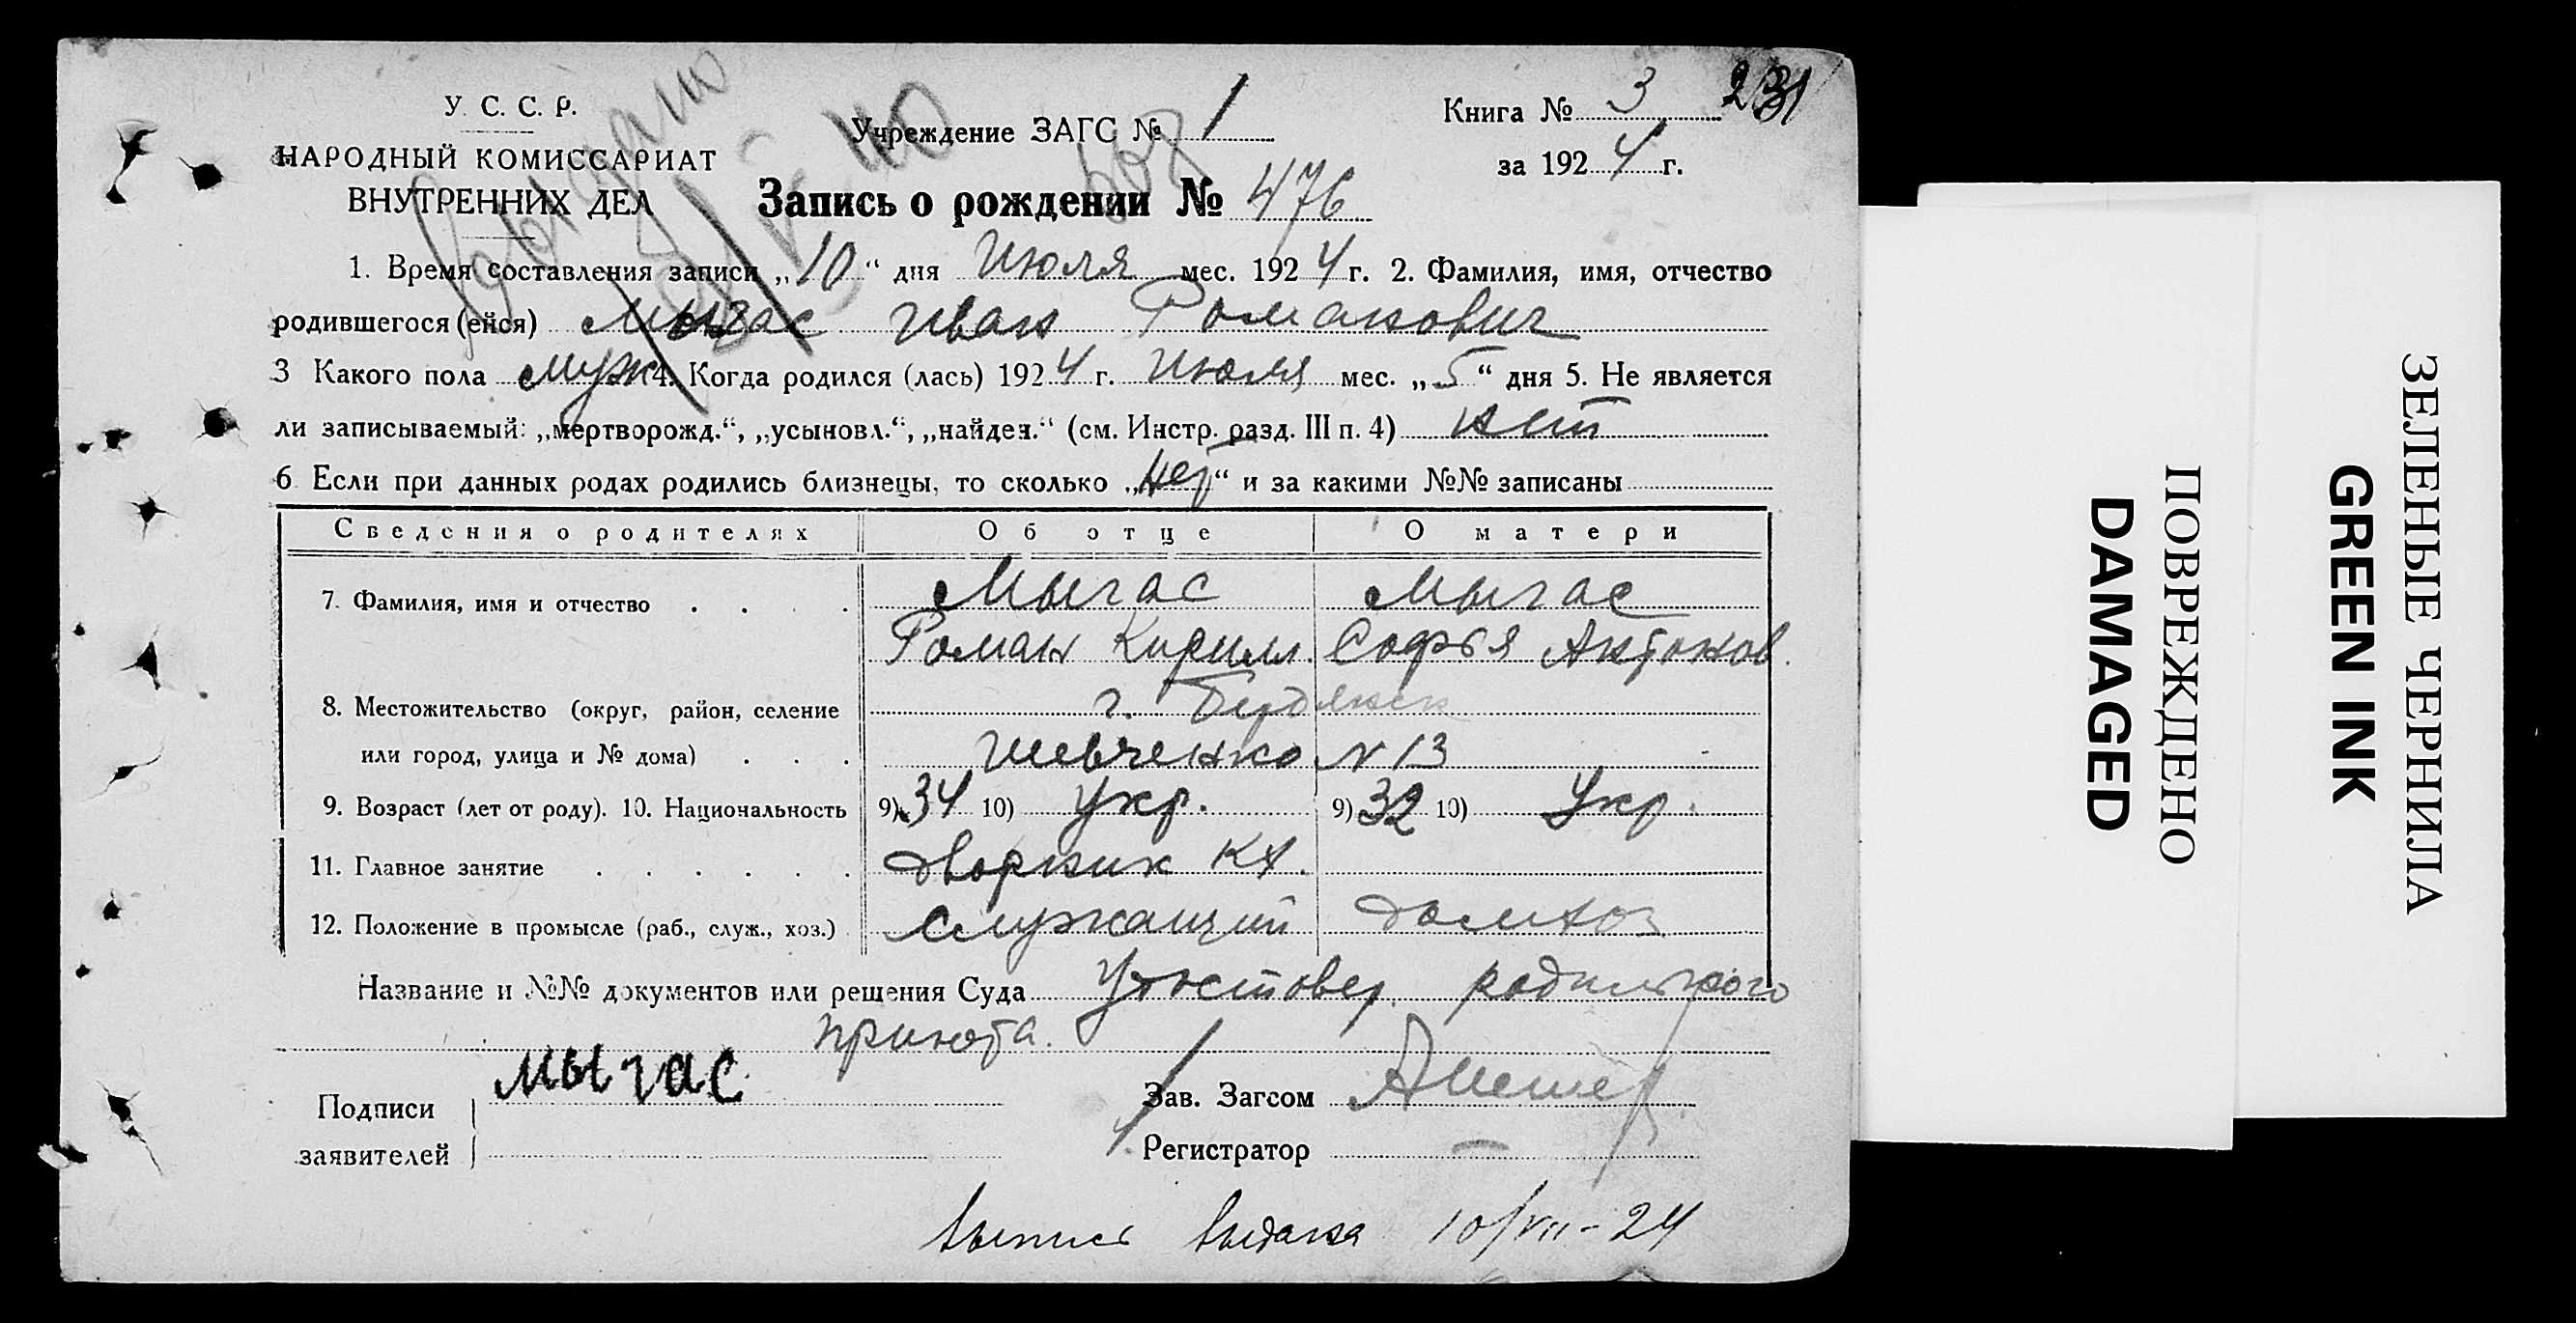 У. С. С. Р.
НАРОДНЫЙ КОМИССАРИАТ
ВНУТРЕННИХ ДЕЛ
Учреждение ЗАГС № 1
Книга № 3 231
за 1924 г.
Запись о рождении № 476
1. Время составления записи „10“ дня Июля мес. 1924 г. 2. Фамилия, имя, отчество
родившегося (ейся) Мыгас Иван Романович
3 Какого пола муж 4. Когда родился (лась) 1924 г. Июля мес. „5“ дня 5. Не является
ли записываемый: „мертворожд.“, „усыновл.“, „найден.“ (см. Инстр. разд. III п. 4) нет
6 Если при данных родах родились близнецы, то сколько „нет“ и за какими №№ записаны
Сведения о родителях Об отце О матери
7. Фамилия, имя и отчество Мыгас Мыгас
Роман Кирилл. Софья Антонов.
8. Местожительство (округ, район, селение г. Бердянск
или город, улица и № дома) Шевченко N 13
9. Возраст (лет от роду). 10. Национальность 9) 34 10) Укр. 9) 32 10) Укр.
11. Главное занятие дворник КХ.
12. Положение в промысле (раб., служ., хоз.) служащий домхоз
Название и №№ документов или решения Суда родильного
приюта.
Подписи мыгас
заявителей
Зав. Загсом
Регистратор —
выпись выдана 10/VII-24
ПОВРЕЖДЕНО
DAMAGED
ЗЕЛЕНЫЕ ЧЕРНИЛА
GREEN INK